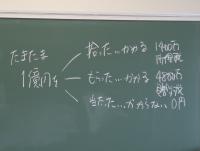 たまたま
1億円を
拾った…かかる 1400万
所得税
もらった…かかる 4800万
贈与税
当たった…かからない 0円